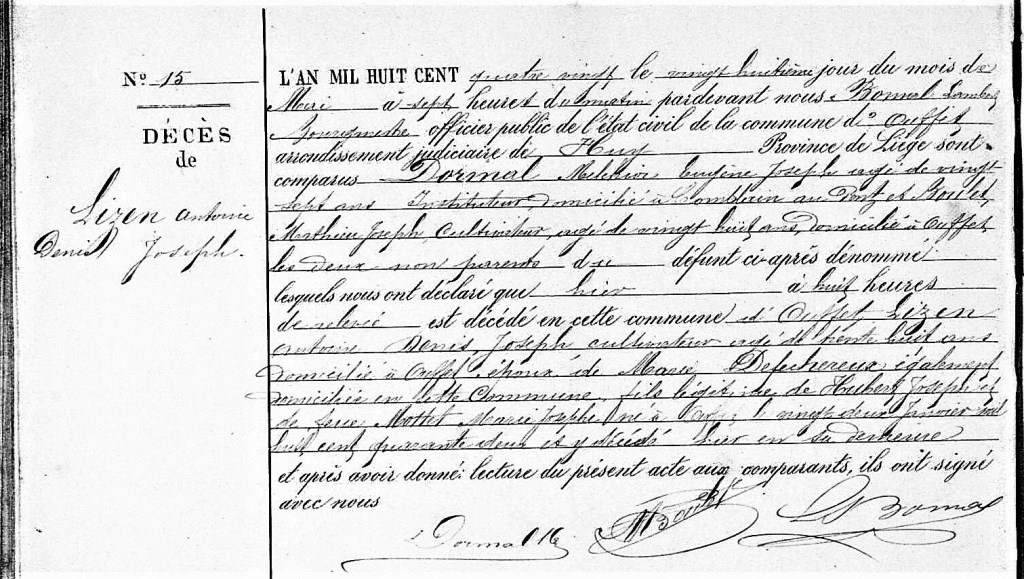 Nº 15
DÉCÈS
de
Lizen Antoine
Denis Joseph.
L'AN MIL HUIT CENT quatre vingt le vingt huitième jour du mois de
Mai à sept heures du matin pardevant nous Bomal Lambert
Bourgmestre officier public de l'état civil de la commune d' Ouffet
arrondissement judiciaire de Huy Province de Liège sont
comparus Dormal Melchior Eugène Joseph agé de vingt
sept ans Instituteur, domicilié à Comblain au Pont et
Mathieu Joseph, Cultivateur, agé de vingt huit ans, domicilié à Ouffet,
les deux non parents du défunt ci-après dénommé
lesquels nous ont déclaré que hier à huit heures
de relevée est décédé en cette commune d' Ouffet Lizen
Antoine Denis, Joseph cultivateur agé de trente huit ans
domicilié à Ouffet époux de Marie Defechereux également
domiciliée en cette Commune, fils légitime de Hubert Joseph et
de feue Mottet Marie Josephe né à Ouffet le vingt deux Janvier mil
huit cent quarante deux et y décédé hier en sa demeure
et après avoir donné lecture du présent acte aux comparants, ils ont signé
avec nous
Dormal
Bomal